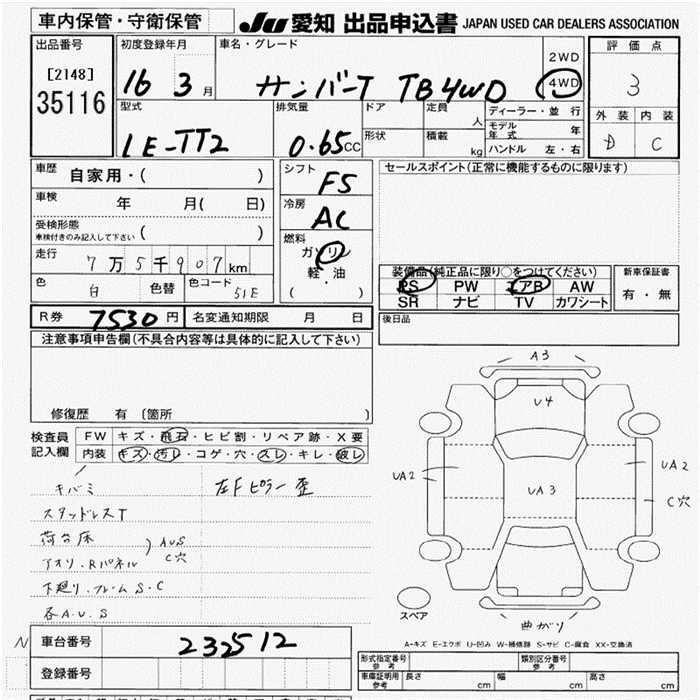 車内保管・守衛保管 JU 愛知 出品申込書 JAPAN USED CAR DEALERS ASSOCIATION
出品番号 初度登録年月 車名・グレード 評価点
[2148] 35116 16 3月 サンバーT TB 4WD 2WD 4WD 3
型式 排気量 ドア 定員 人 ディーラー・並行 外装 内装
LE-TT2 0.65CC 形状 積載 kg モデル年式 年 D C
ハンドル 左・右
車歴 自家用・( ) シフト F5 セールスポイント(正常に機能するものに限ります)
車検 年 月( 日) 冷房 AC
受検形態 車検付きのみ記入して下さい ( ) 燃料 ガソリン
走行 7万5千907km 軽・油 装備品(純正品に限り○をつけてください) 新車保証書
色 白 色替 色コード 51E ( ) PS PW エアB AW 有・無
SR ナビ TV カワシート
R券 7530円 名変通知期限 月 日 後日品
注意事項申告欄(不具合内容等は具体的に記入して下さい)
修復歴 有〔箇所 〕
検査員記入欄 FW キズ・飛石・ヒビ割・リペア跡・X要
内装 キズ・汚レ・コゲ・穴・スレ・キレ・破レ
キバミ 左Fピラー歪
スタッドレスT
荷台床
アオリ.Rパネル ) AUS C穴
下廻り.フレームS.C
各A.U.S
A3
U4
UA2 UA3 UA2
C穴
スペア 曲がり
A-キズ E-エクボ U-凹み W-補修跡 S-サビ C-腐食 XX-交換済
N 車台番号 232512
登録番号
形式指定番号 参考 類別区分番号 参考
車庫証明用 参考 長さ cm 幅 cm 高さ cm